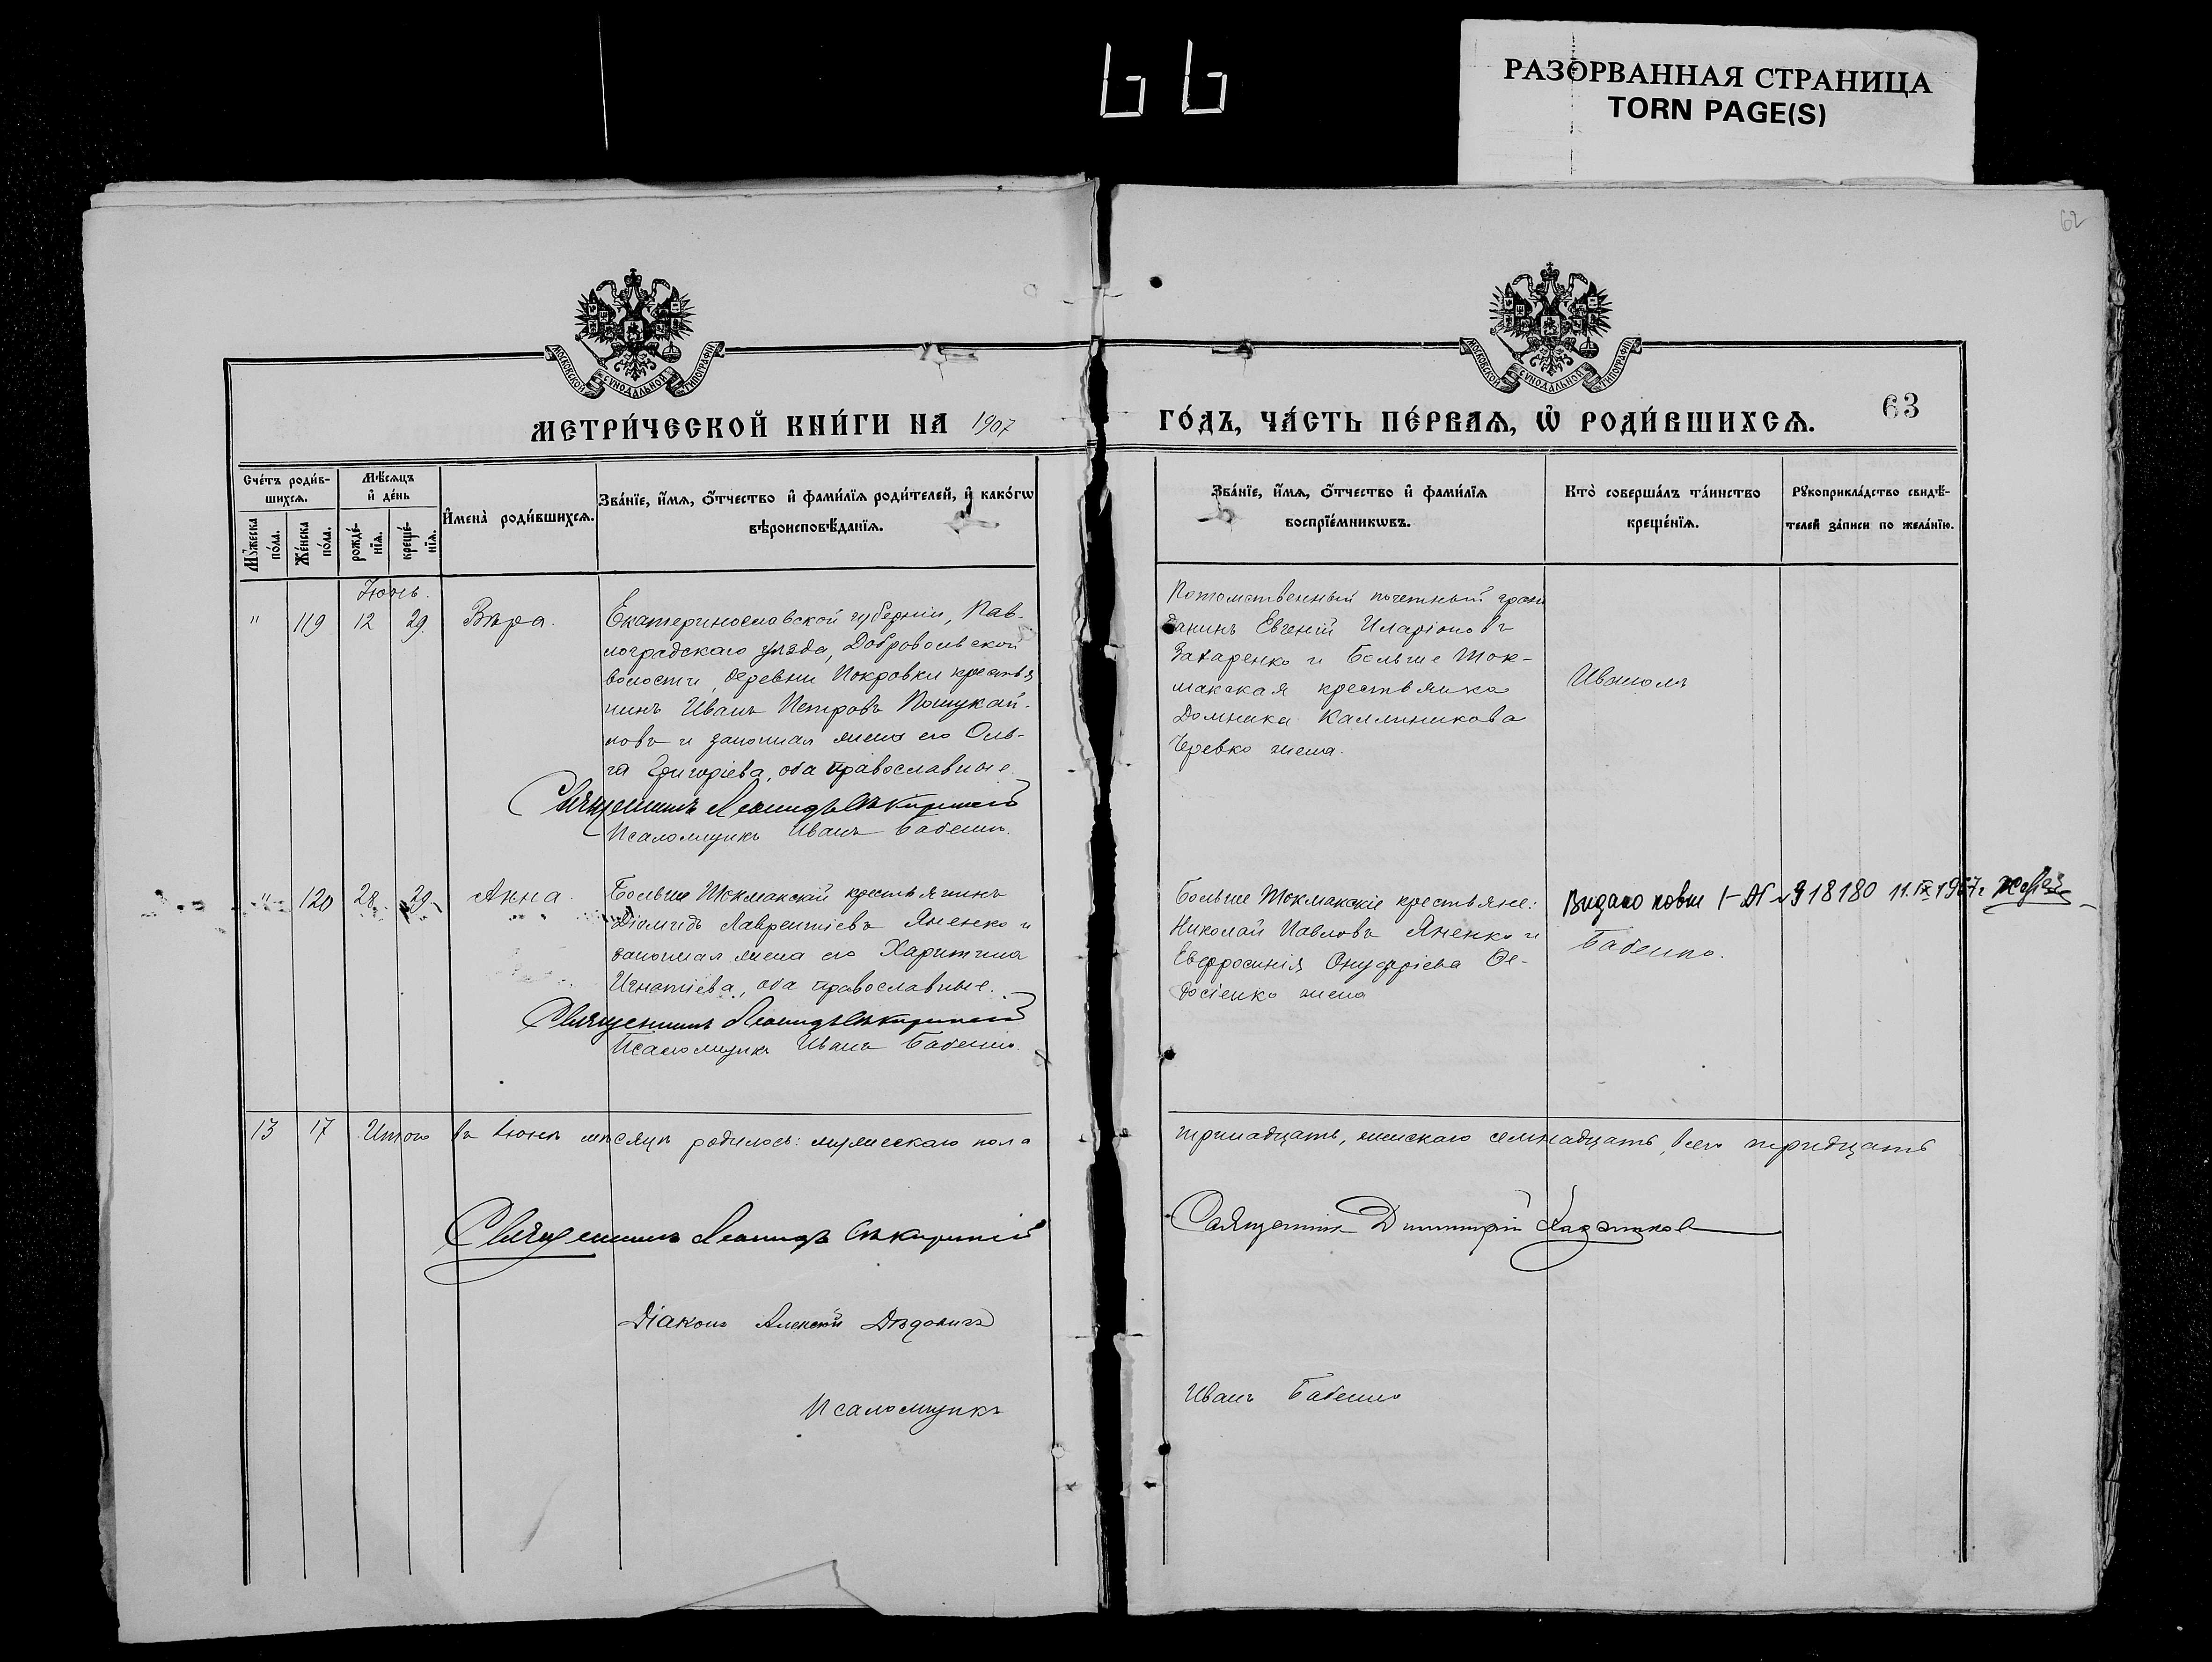 РАЗОРВАННАЯ СТРАНИЦА
TORN PAGE(S)
62
МОСКОВСКОЙ СѴНОДАЛЬНОЙ ТИПОГРАФІИ
МОСКОВСКОЙ СѴНОДАЛЬНОЙ ТИПОГРАФІИ
МЕТРИ́ЧЕСКОЙ КНИ́ГИ НА 1907
ГО́ДЪ, ЧА́СТЬ ПЕ́РВАѦ, Ѡ҆ РОДИ́ВШИХСѦ.
63
Сче́тъ роди́в-
шихсѧ.
Мꙋ́жеска
по́ла.
Же́нска
по́ла.
Мѣ́сѧцъ
и҆ де́нь
рожде́-
нїѧ.
креще́-
нїѧ.
И҆мена̀ роди́вшихсѧ.
Зва́нїе, и҆́мѧ, ѻ҆́тчество и҆ фами́лїѧ роди́телей, и҆ како́гѡ
вѣроисповѣ́данїѧ.
Зва́нїе, и҆́мѧ, ѻ҆́тчество и҆ фами́лїѧ
воспрїе́мникѡвъ.
Кто̀ соверша́лъ та́инство
креще́нїѧ.
Рꙋкоприкла́дство свидѣ́-
телей за́писи по жела́нїю.
Іюнь.
" 119 12 29. Вѣра.
Екатеринославской губерніи, Пав-
лоградскаго уѣзда, Добровольской
волости, деревни Покровки крестья
нинъ Иванъ Петровъ
и законная жена его Оль-
га Григоріева, оба православные.
Священникъ Леонидъ
Псаломщикъ Иванъ Бабенко.
Потомственный почетный граж
данинъ Евгеній Иларіоновъ
Захаренко и Больше Ток-
макская крестьянка
Домника Каллиникова
Черевко жена.
" 120 28 29 Анна
Больше Токмакскій крестьянинъ
Діомидъ Лаврентіевъ Яненко и
законная жена его Харитина
Игнатіева, оба православные.
Священникъ Леонидъ
Псаломщикъ Иванъ Бабенко.
Больше Токмакскіе крестьяне:
Николай Павловъ Яненко и
Евфросинія Онуфріева Ѳе-
досіенко жена
Видано повт 918180 11.IX 1967г
Бабенко.
13 17 Итого въ Іюнѣ мѣсяцѣ родилось: мужескаго пола
тринадцать, женскаго семнадцать, всего тридцать
Священникъ Леонидъ
Священникъ Димитрій
Діаконъ Алексій
Псаломщикъ
Иванъ Бабенко